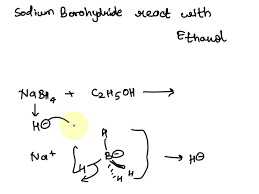 Sodium Borohydride react with
Ethanol
NaBH4 + C2H5OH →
H⊖
Na+ [H B⊖ H H H] → H⊖